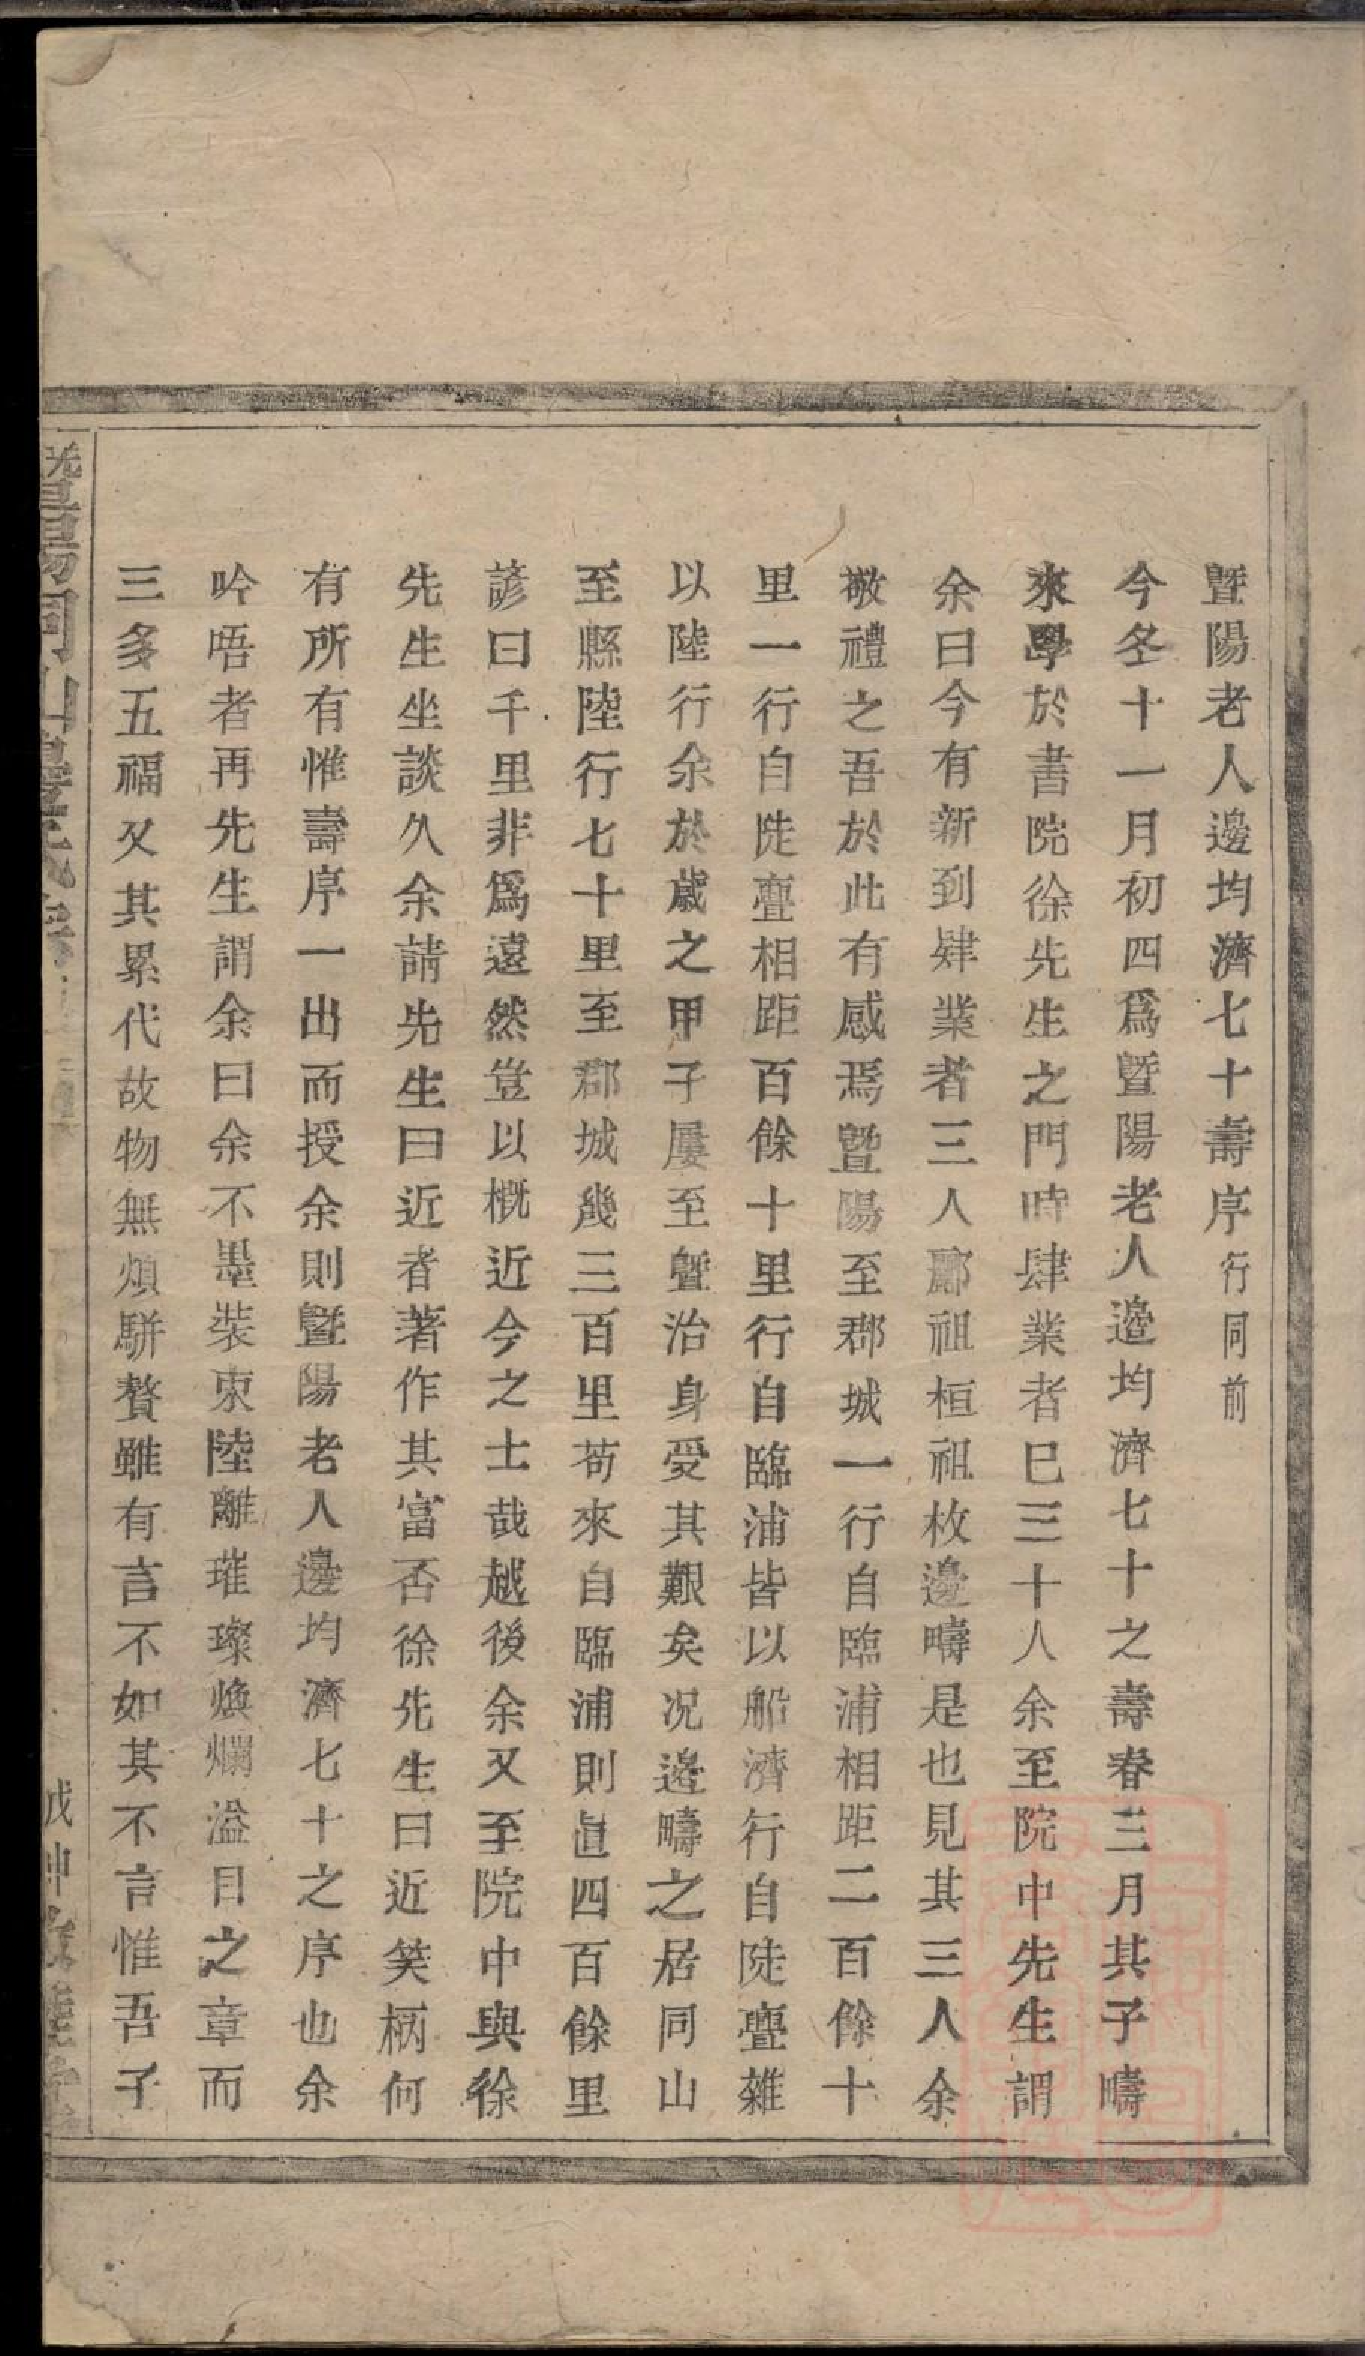 暨陽老人邊均濟七十壽序行同前
今冬十一月初四爲暨陽老人邊均濟七十之壽春三月其子疇
來學於書院徐先生之門時肆業者已三十人余至院中先生謂
余曰今有新到肄業者三人酈祖桓祖枚邊疇是也見其三人余
敬禮之吾於此有感焉暨陽至郡城一行自臨浦相距二百餘十
里一行自陡亹相距百餘十里行自臨浦皆以船濟行自陡亹雜
以陸行余於歲之甲子屢至暨治身受其艱矣况邊疇之居同山
至縣陸行七十里至郡城幾三百里苟來自臨浦則直四百餘里
諺曰千里非爲遠然豈以槪近今之士哉越後余又至院中與徐
先生坐談久余請先生曰近者著作其富否徐先生曰近笑柄何
有所有惟壽序一出而授余則暨陽老人邊均濟七十之序也余
吟唔者再先生謂余曰余不墨裝束陸離璀璨煥爛溢目之章而
三多五福又其累代故物無煩駢贅雖有言不如其不言惟吾子
暨陽同山邊氏宗